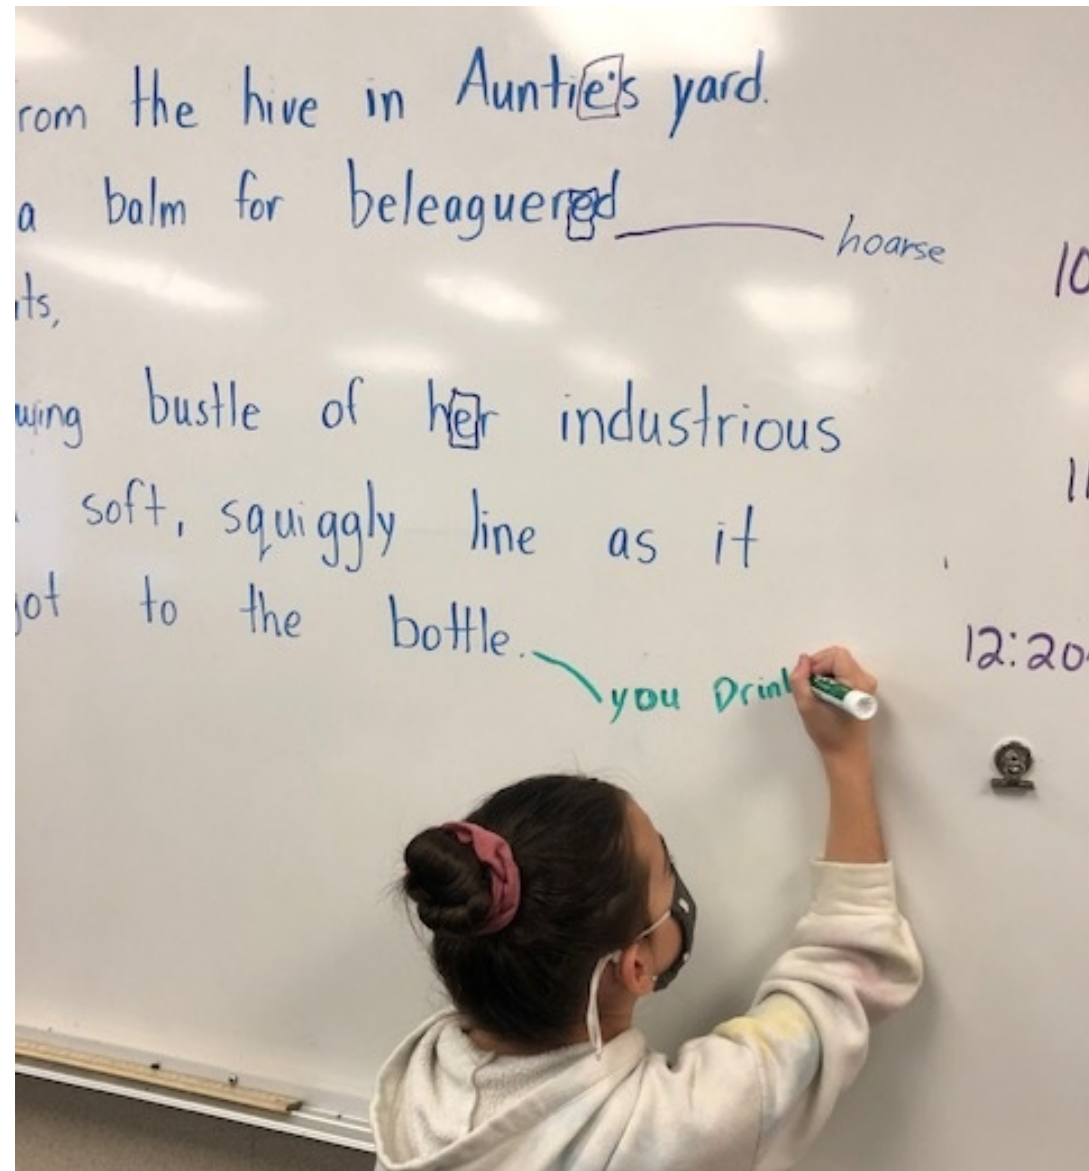 rom the hive in Auntie's yard.
a balm for beleaguered hoarse
ts,
wing bustle of her industrious
soft, squiggly line as it
ot to the bottle.
you Drink
10
11
12:20